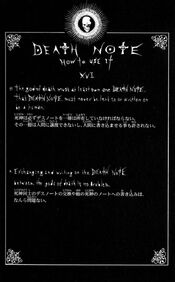 DEATH NOTE
How to USE It
XVI
The god of death must at least own one DEATH NOTE.
That DEATH NOTE must never be lent to or written on
by a human.
死神は必ずデスノートを一冊は所有していなければならない。
その一冊は人間に譲渡できないし、人間に書き込ませる事も許されない。
Exchanging and writing on the DEATH NOTE
between the gods of death is no problem.
死神同士のデスノートの交換や他の死神のノートへの書き込みは、
なんら問題ない。